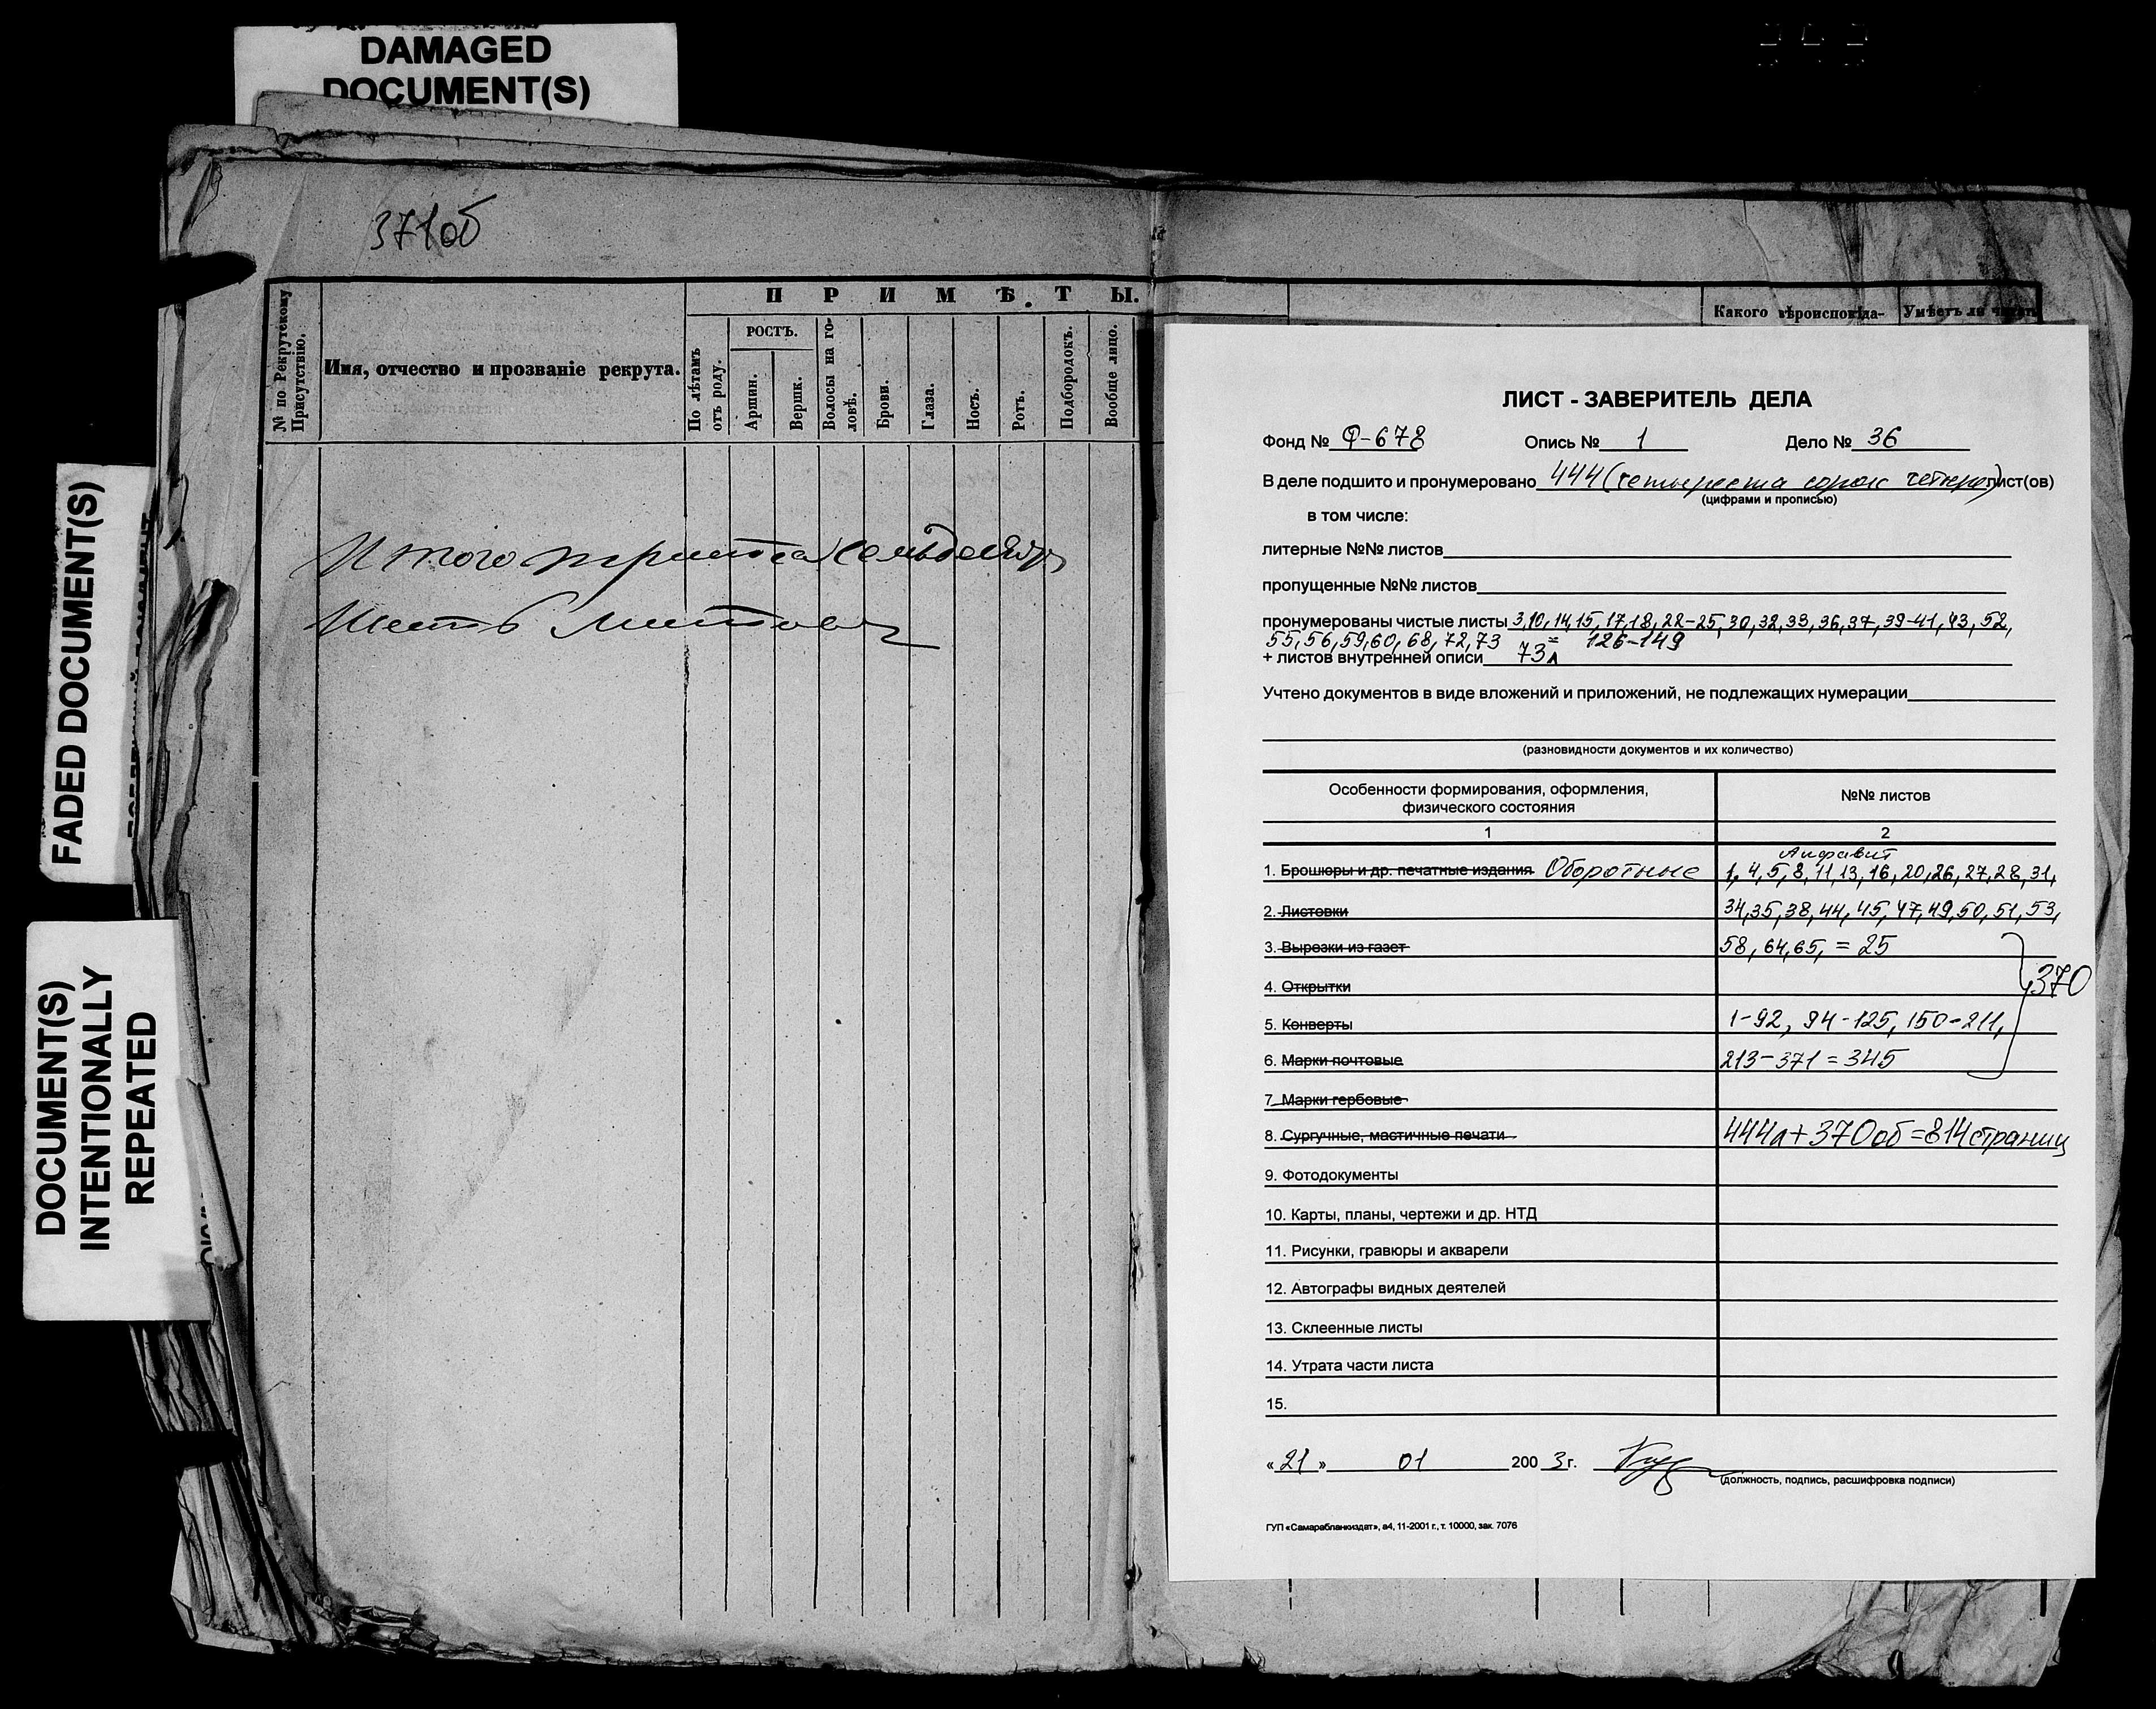 DAMAGED
DOCUMENT(S)
FADED DOCUMENT(S)
DOCUMENT(S)
INTENTIONALLY
REPEATED
371об
№ по Рекрутскому
Присутствію.
Имя, отчество и прозваніе рекрута.
ПРИМѢТЫ.
По лѣтамъ
отъ роду.
РОСТЪ.
Аршин.
Вершк.
Волосы на го-
ловѣ.
Брови.
Глаза.
Носъ.
Ротъ.
Подбородокъ.
Вообще лицо.
Итого триста семьдесятъ
шесть листовъ
Какого вѣроисповѣда-
Умѣетъ ли читать
ЛИСТ - ЗАВЕРИТЕЛЬ ДЕЛА
Фонд № Ф-678 Опись № 1 Дело № 36
В деле подшито и пронумеровано 444 (четыреста сорок четыре) лист(ов)
(цифрами и прописью)
в том числе:
литерные №№ листов
пропущенные №№ листов
пронумерованы чистые листы 3,10,14,15,17,18,22-25,30,32,33,36,37,39-41,43,52,
55,56,59,60,68,72,73 = 126-149
+ листов внутренней описи 73л
Учтено документов в виде вложений и приложений, не подлежащих нумерации
(разновидности документов и их количество)
Особенности формирования, оформления,
физического состояния
№№ листов
1 2
Алфавит
1. Брошюры и др. печатные издания Оборотные 1,4,5,8,11,13,16,20,26,27,28,31,
2. Листовки 34,35,38,44,45,47,49,50,51,53,
3. Вырезки из газет 58,64,65, = 25
4. Открытки 370
5. Конверты 1-92, 94-125, 150-211,
6. Марки почтовые 213-371 = 345
7. Марки гербовые
8. Сургучные, мастичные печати 444л + 370об = 814 страниц
9. Фотодокументы
10. Карты, планы, чертежи и др. НТД
11. Рисунки, гравюры и акварели
12. Автографы видных деятелей
13. Склеенные листы
14. Утрата части листа
15.
«21» 01 2003г.
(должность, подпись, расшифровка подписи)
ГУП «Самарабланкиздат», а4, 11-2001 г., т. 10000, зак. 7076